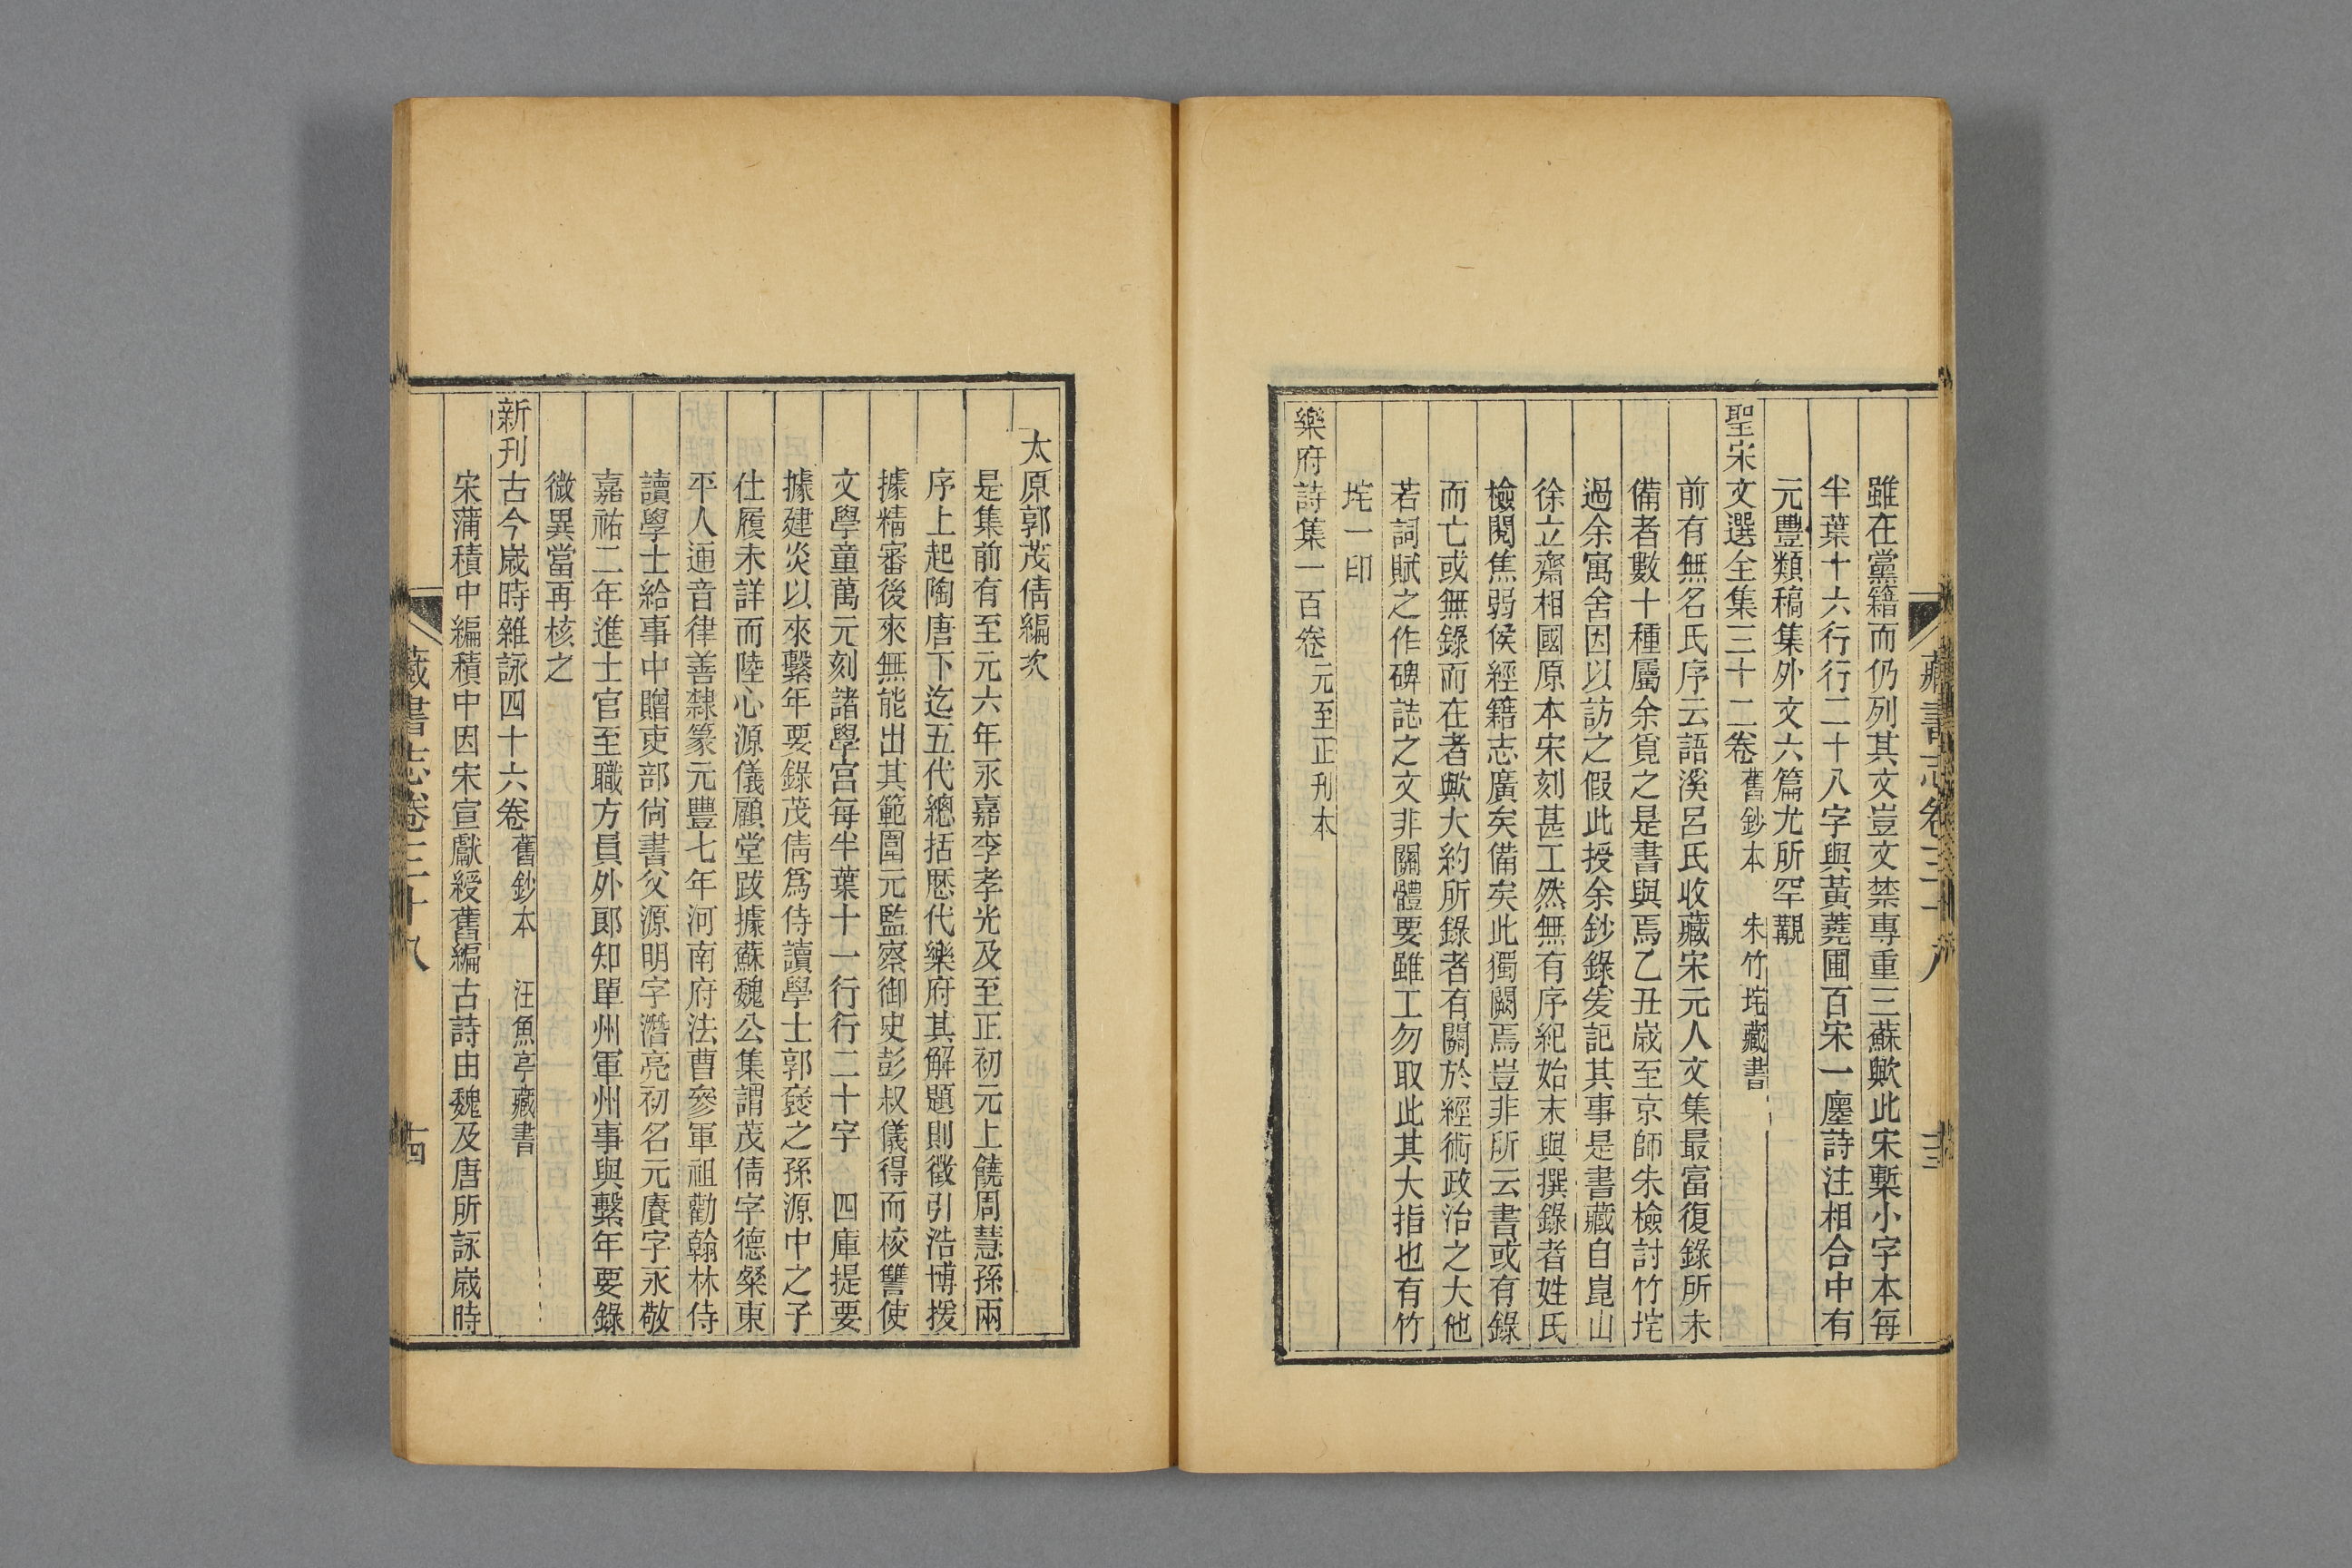 雖在黨籍而仍列其文豈文禁專重三蘇歟此宋槧小字本每
半葉十六行行二十八字與黃蕘圃百宋一廛詩注相合中有
元豐類稿集外文六篇尤所罕覯
聖宋文選全集三十二卷 舊鈔本 朱竹垞藏書
前有無名氏序云語溪呂氏收藏宋元人文集最富復錄所未
備者數十種屬余覓之是書與焉乙丑歲至京師朱檢討竹垞
過余寓舍因以訪之假此授余鈔錄爰記其事是書藏自崑山
徐立齋相國原本宋刻甚工然無有序紀始末與撰錄者姓氏
檢閱焦弱侯經籍志廣矣備矣此獨闕焉豈非所云書或有錄
而亡或無錄而在者歟大約所錄者有關於經術政治之大他
若詞賦之作碑誌之文非關體要雖工勿取此其大指也有竹
垞一印
樂府詩集一百卷 元至正刊本
藏書志卷三十八
太原郭茂倩編次
是集前有至元六年永嘉李孝光及至正初元上饒周慧孫兩
序上起陶唐下迄五代總括歷代樂府其解題則徵引浩博援
據精審後來無能出其範圍元監察御史彭叔儀得而校讐使
文學童萬元刻諸學宮每半葉十一行行二十字 四庫提要
據建炎以來繫年要錄茂倩爲侍讀學士郭裒之孫源中之子
仕履未詳而陸心源儀顧堂跋據蘇魏公集謂茂倩字德粲東
平人通音律善隸篆元豐七年河南府法曹參軍祖勸翰林侍
讀學士給事中贈吏部尙書父源明字潛亮初名元賡字永敬
嘉祐二年進士官至職方員外郎知單州軍州事與繫年要錄
微異當再核之
新刊古今歲時雜詠四十六卷 舊鈔本 汪魚亭藏書
宋蒲積中編積中因宋宣獻綬舊編古詩由魏及唐所詠歲時
藏書志卷三十八
十四